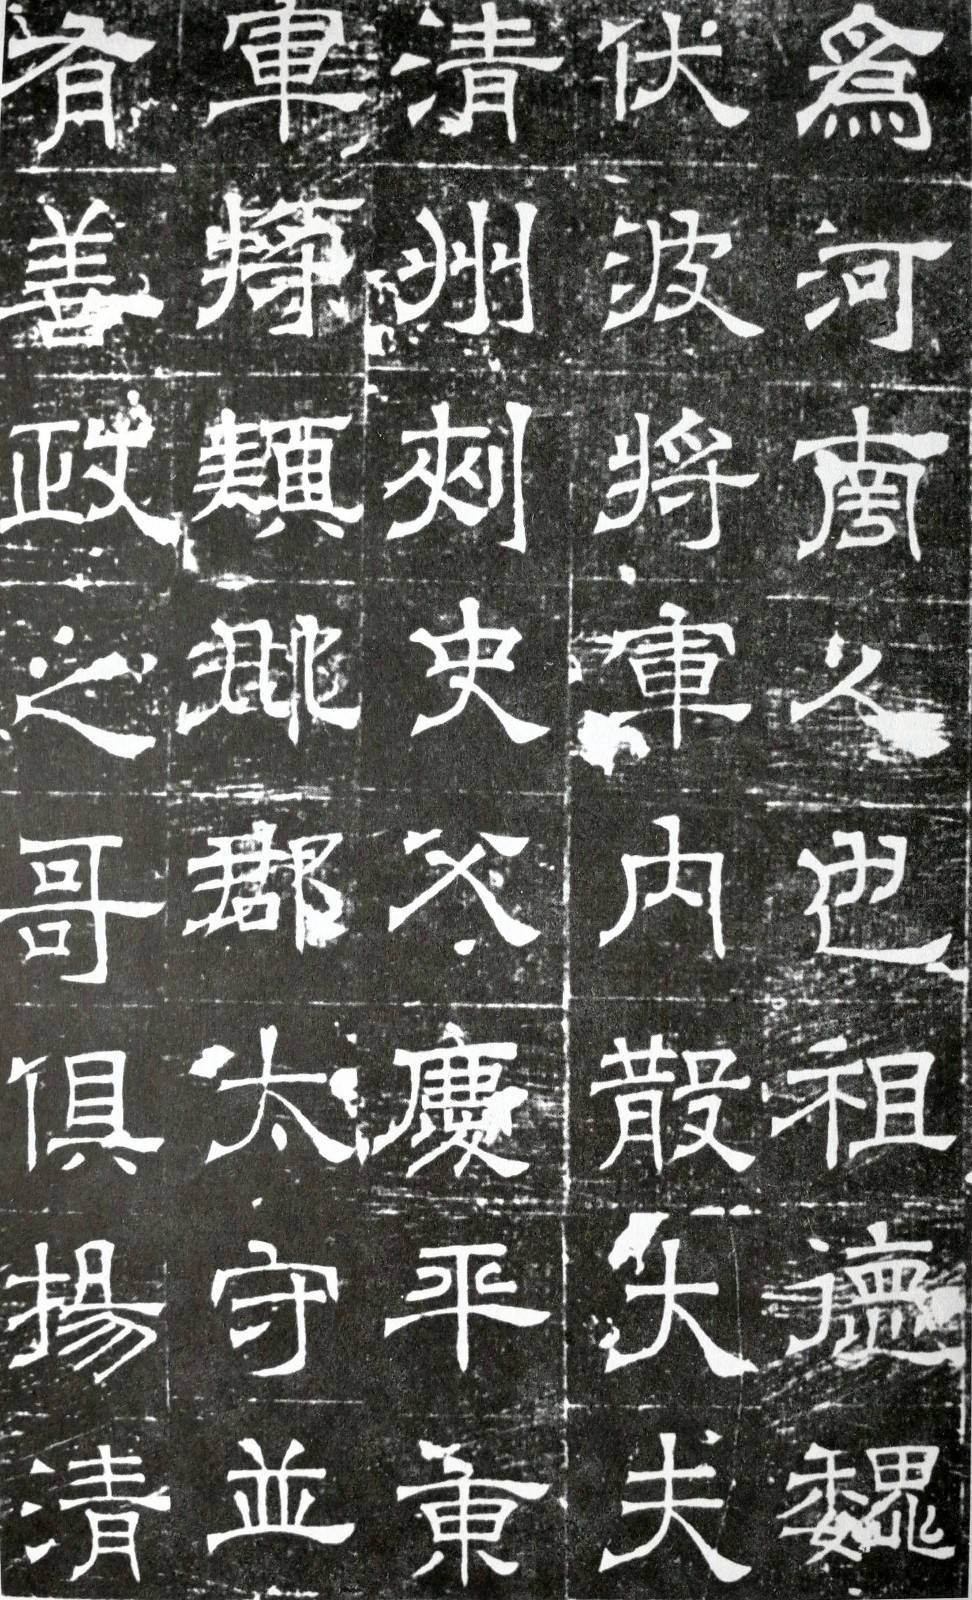 爲河南人也祖德魏
伏波將軍内散大夫
清州刺史父慶平東
軍將郡太守並
有善政之哥俱揚清